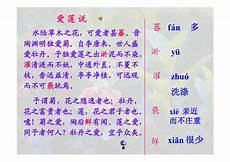 爱莲说
水陆草木之花，可爱者甚蕃。晋
陶渊明独爱菊。自李唐来，世人盛
爱牡丹。予独爱莲之出淤泥而不染，
濯清涟而不妖，中通外直，不蔓不
枝，香远益清，亭亭净植，可远观
而不可亵玩焉。
予谓菊，花之隐逸者也；牡丹，
花之富贵者也；莲，花之君子者
也。噫！菊之爱，陶后鲜有闻。莲之爱，
同予者何人？牡丹之爱，宜乎众矣。
蕃 fán 多
淤 yū
濯 zhuó
洗涤
亵 xiè 亲近
而不庄重
鲜 xiǎn 很少